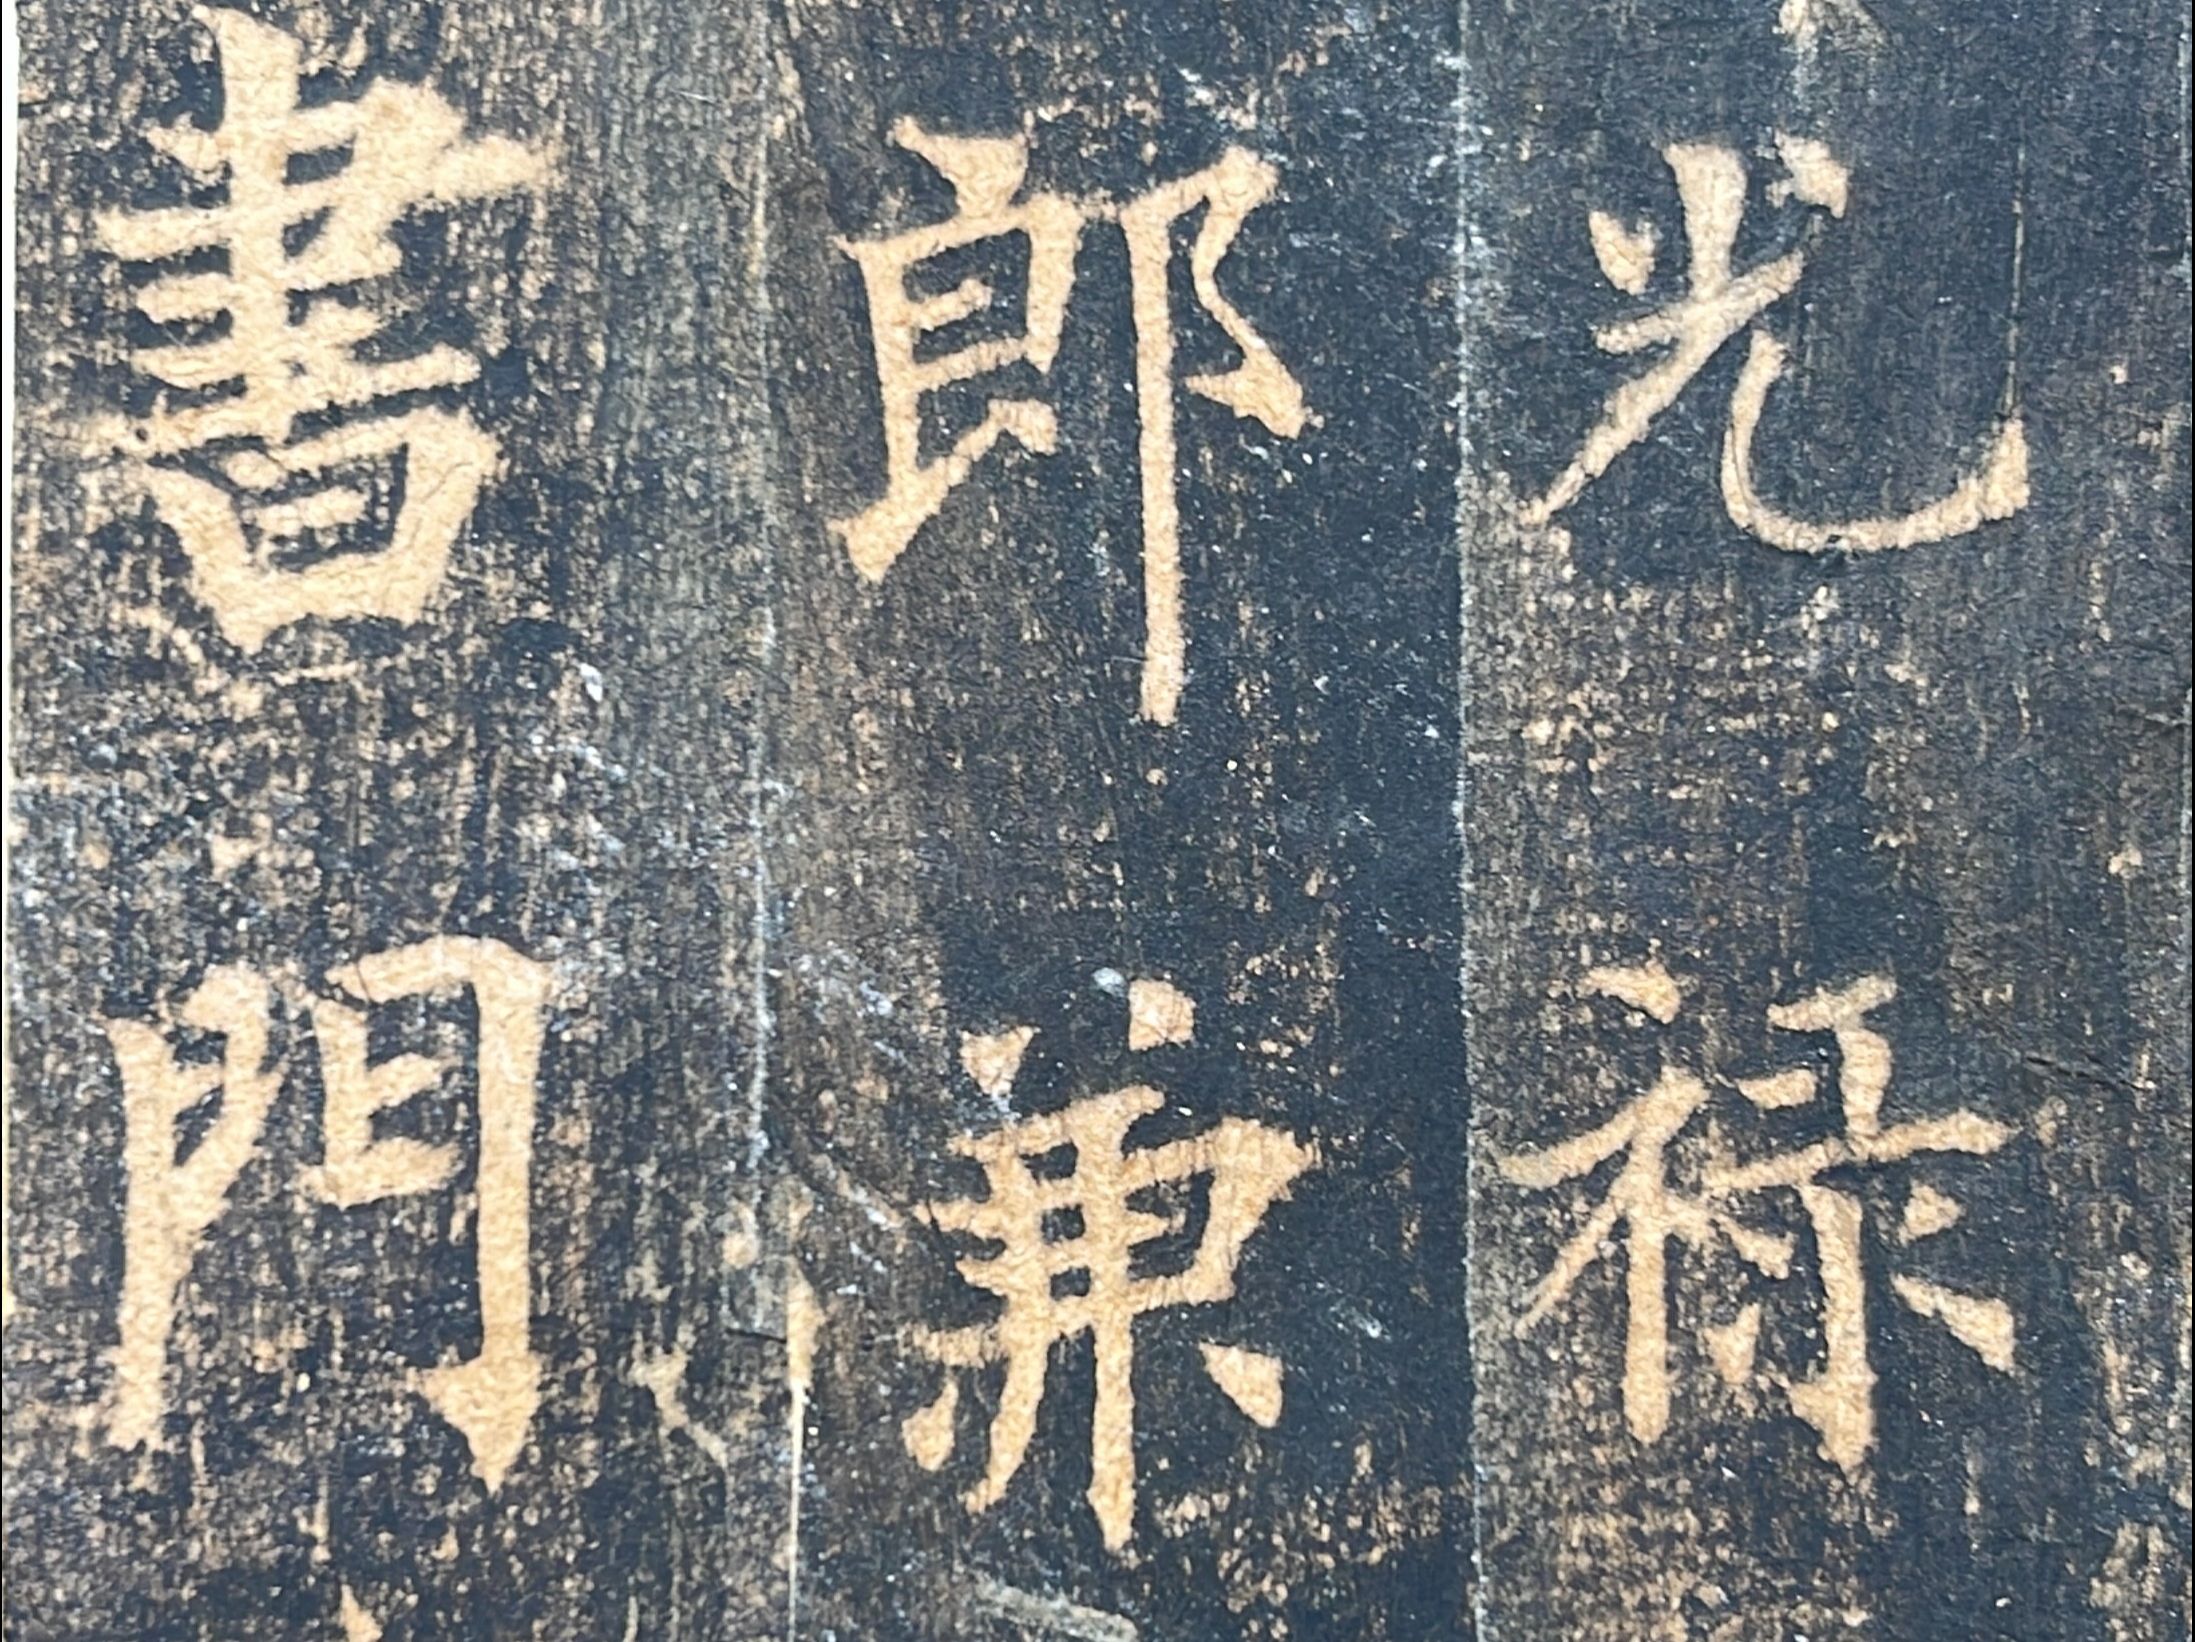 光祿
郎兼
書門